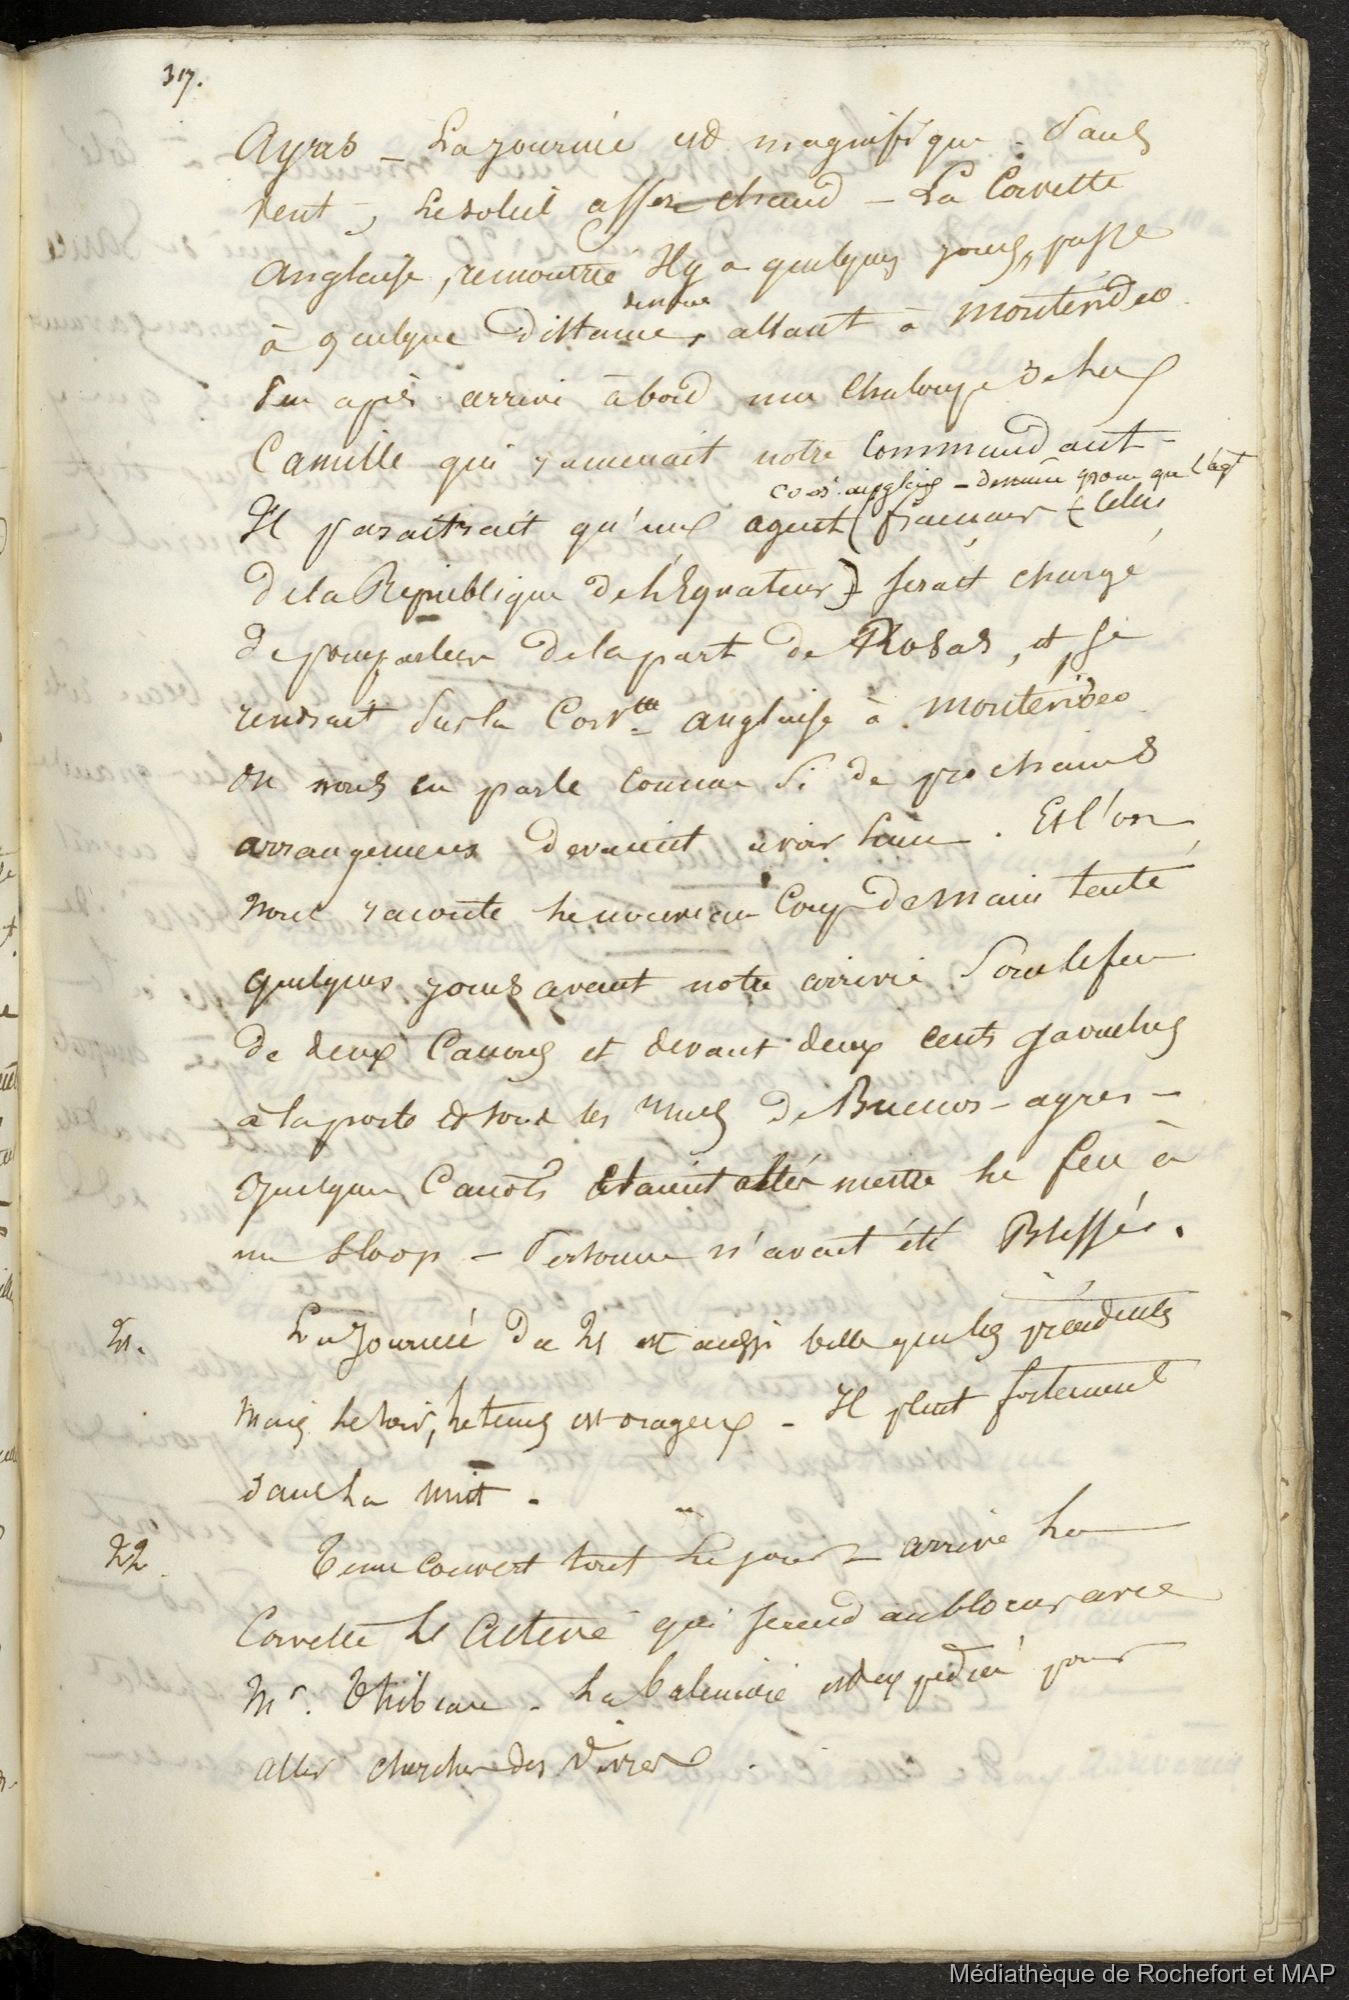 317.
Ayres – La journée est magnifique. Sans
vent, le soleil assez chaud – La Corvette
anglaise, rencontrée il y a quelques jours, passe
de nous
à quelque distance, allant à Montévidéo.
Peu après arrive à bord une chaloupe de la
Camille qui ramenait notre Commandant –
anglais – que l'agt
Il paraitrait qu'un agent (français & celui
de la République de l'Equateur) serait chargé
de pourparlers de la part de Rosas, et se
rendrait sur la Corvtte anglaise à Montévidéo.
On nous en parle comme si de prochains
arrangemens devaient avoir lieu. Et l'on
nous raconte le nouveau Coup de Main tenté
quelques jours avant notre arrivée sous le feu
de deux Canons et devant deux cents gaouchos
à la porte et sous les murs de Buenos-ayres –
Quelques Canots étaient allés mettre le feu à
un Sloop – Personne n'avait été Blessé.
21.
La Journée du 21 est aussi belle que les précédentes
Mais le soir, le tems est orageux – Il pleut fortement
dans la nuit.
22.
Tems couvert tout le jour – arrive la
Corvette L'Alcmène qui se rend au blocus avec
Mr. Thibeau. La baleinière est expédiée pour
aller chercher des vivres.
Médiathèque de Rochefort et MAP